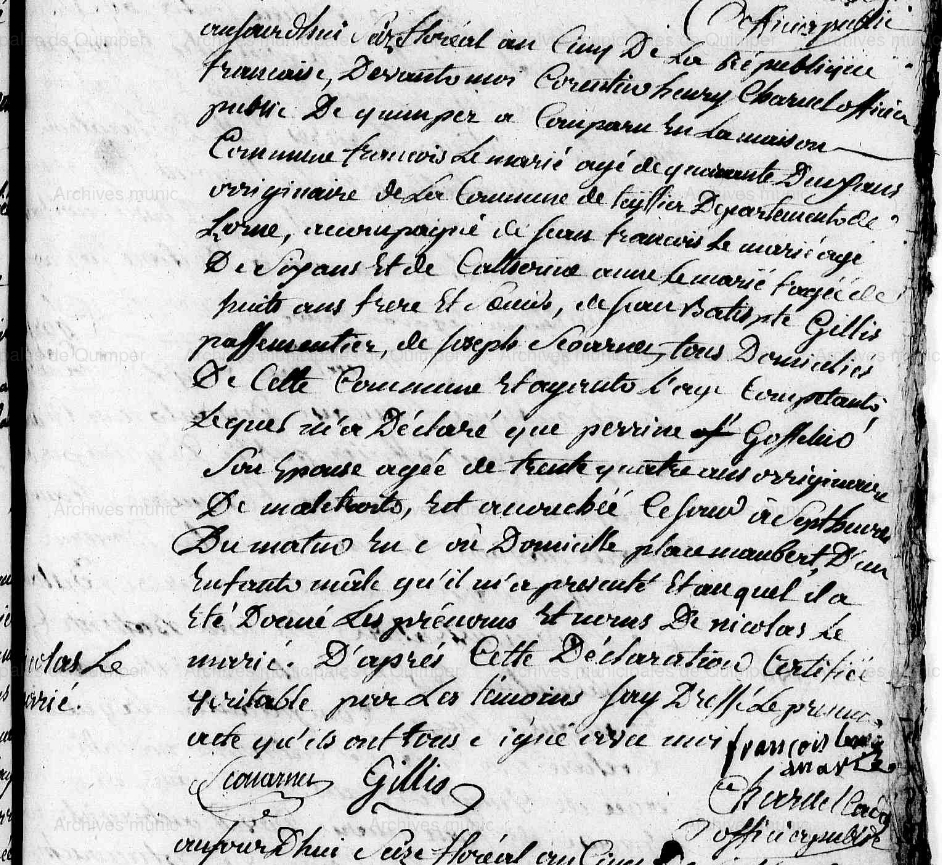 officier public
aujourdhui Seize floréal an Cinq De La République
francaise, Devant moi Corentin henry Charuel officier
public De quimper a Comparu En La maison
Commune francois Le marié agé de quarante Deux ans
originaire de La Commune de Département de
Lorne, acompagné de Jean francois Le marié agé
De ans Et de Catherine anne Le marié agée de
huit ans frere Et , de Jean Batispte Gillis
passementier, de Joseph Scouarnec, tous Domiciliés
De Cette Commune Et ayants l'age Competants,
Lequel m'a Déclaré que perrine Gosselin
Son Epouse agée de trente quatre ans originaire
De , Est acouchée ce jour à Sept heures
Du matin En c on Domicille place maubert, D'un
Enfants mâle qu'il m'a présenté Et auquel il a
Eté Donné Les prénoms Et noms De nicolas Le
marié. D'aprés Cette Déclaration Certifiée
veritable par Les témoins Jay Dressé Le present
acte qu'ils ont tous c igné avec moi françois
marie
Scouarnec Gillis
Charuel
officier public
nicolas Le
marié.
aujourdhui Seize floréal an Cinq
Archives municipales de Quimper